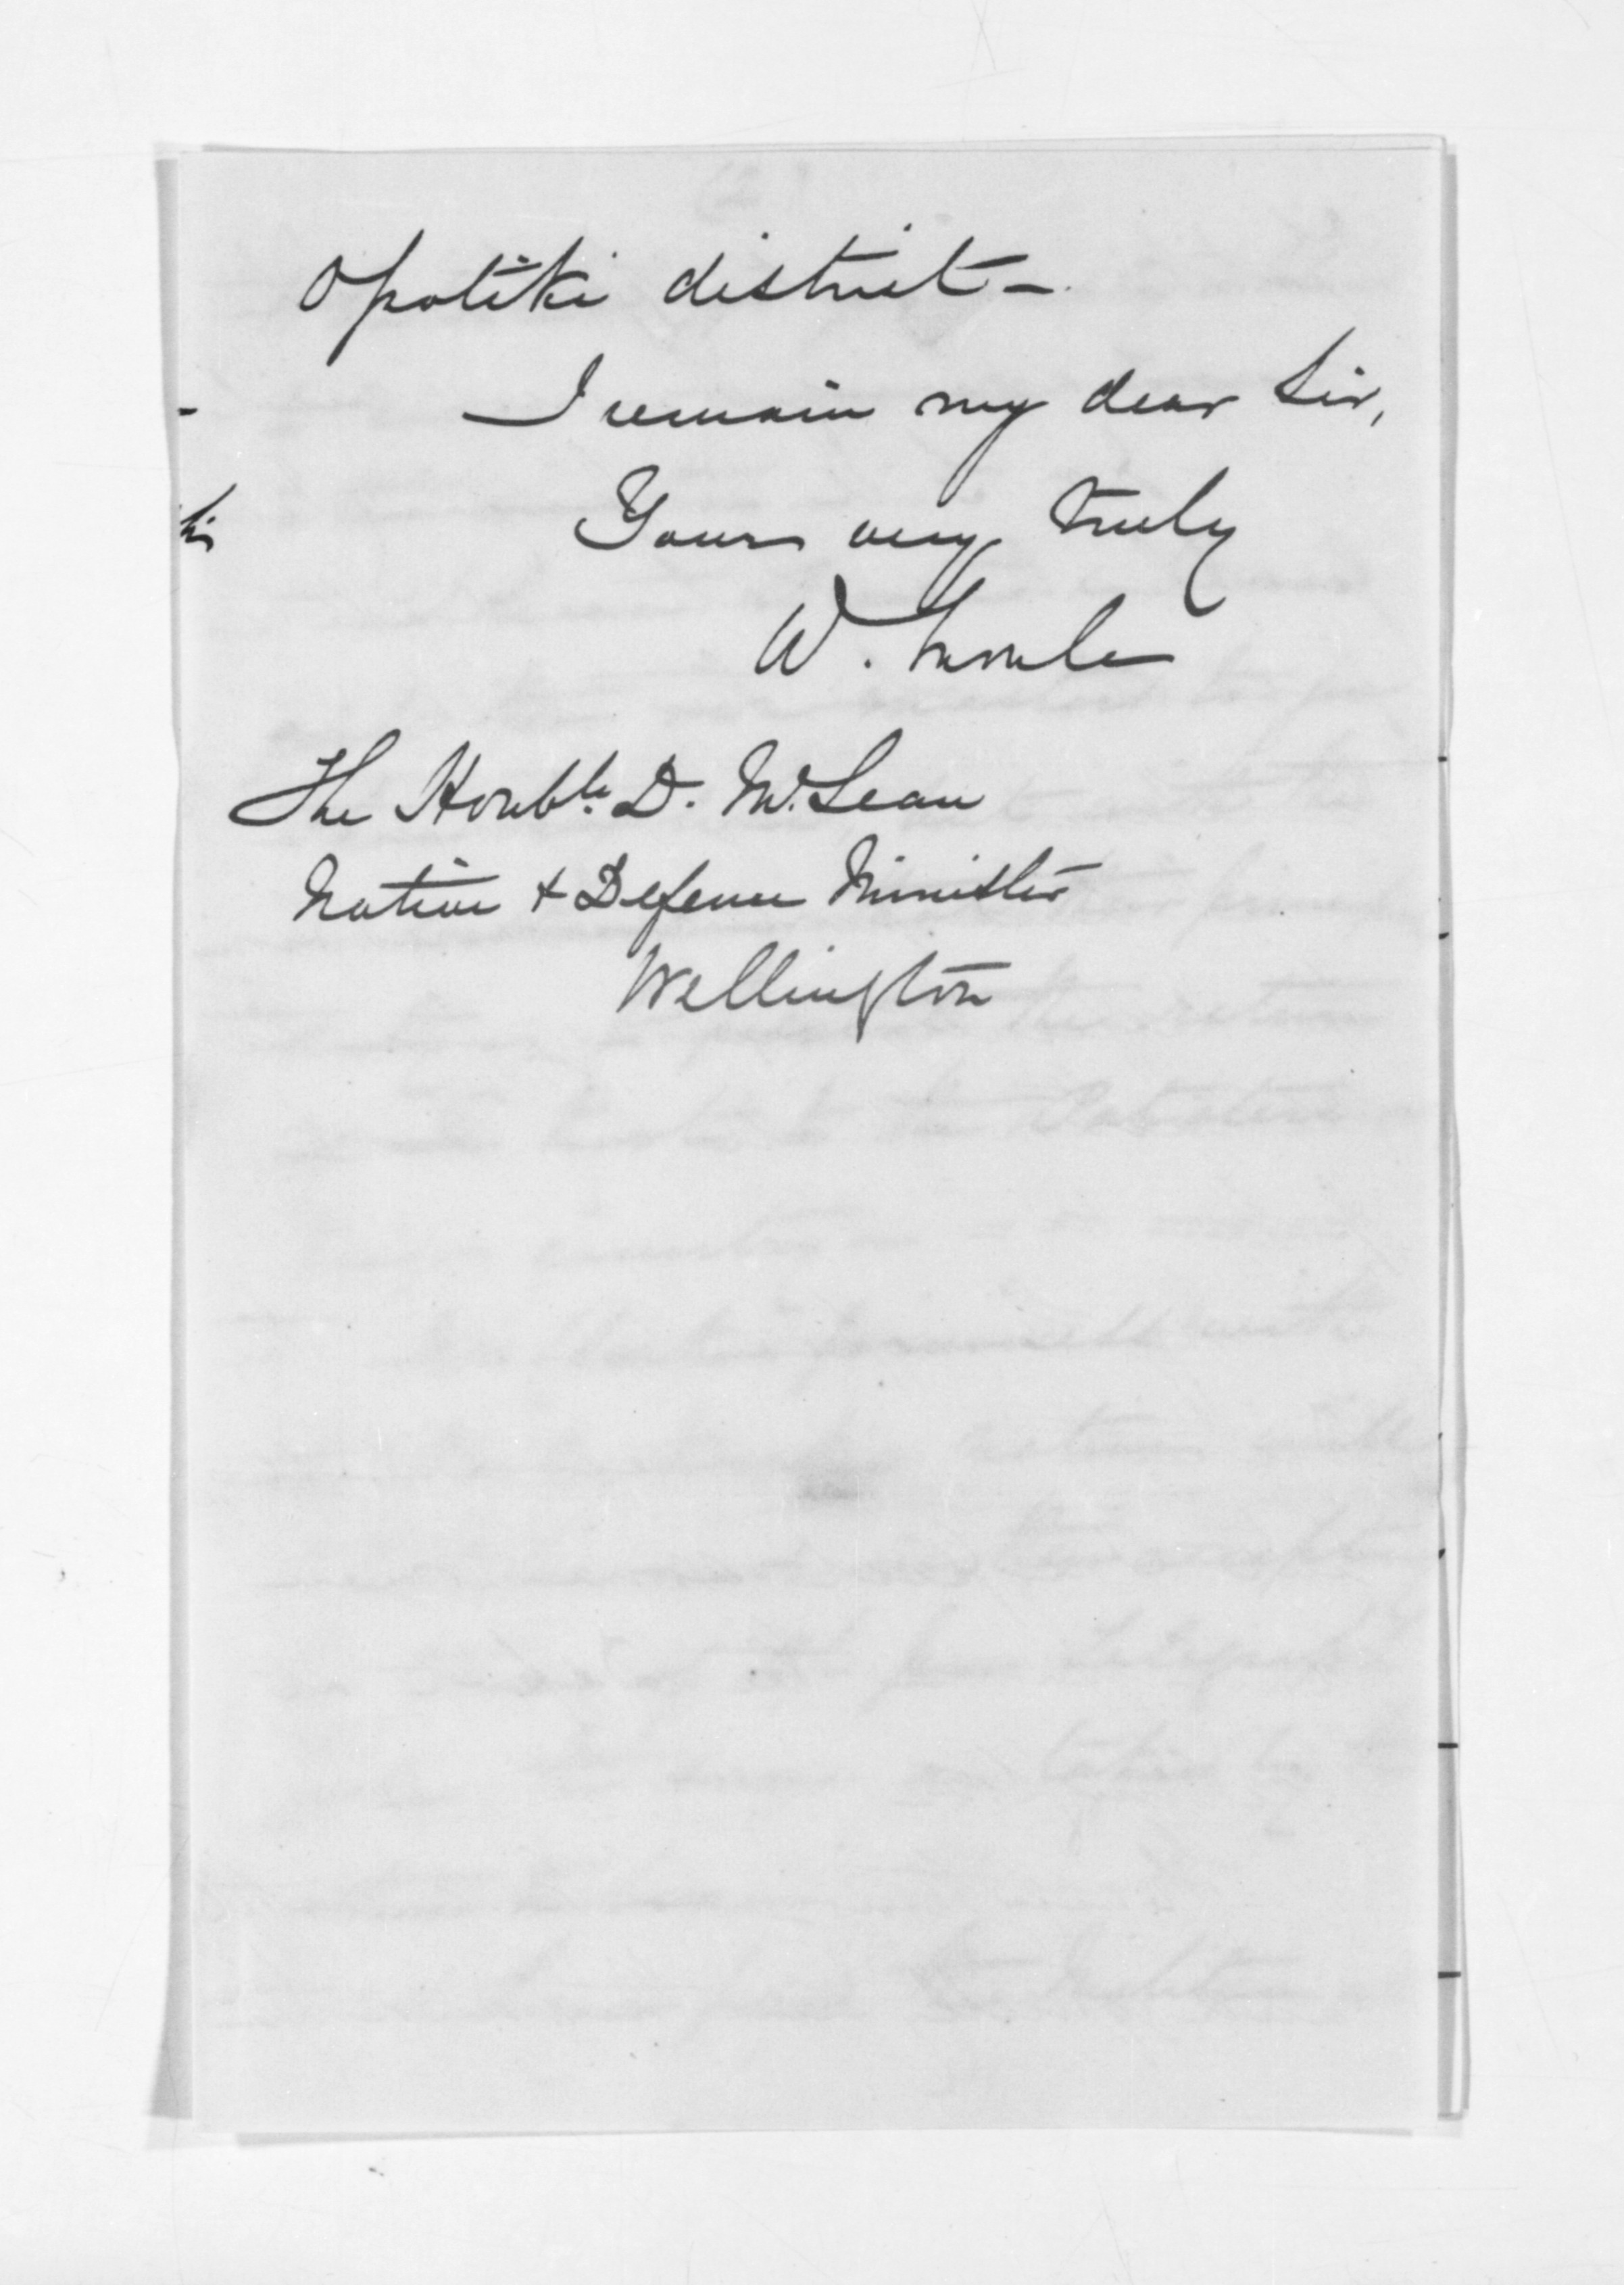 Opotiki district –
I remain my dear Sir,
Yours very truly
W. Moule
The Honble. D. McLean
Native & Defence Minister
Wellington